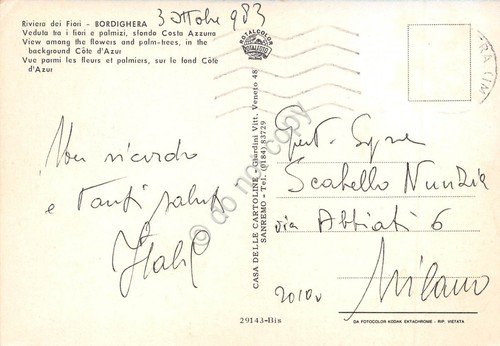 Riviera dei Fiori - BORDIGHERA
Veduta tra i fiori e palmizi, sfondo Costa Azzurra
View among the flowers and palm-trees, in the
background Côte d'Azur
Vue parmi les fleurs et palmiers, sur le fond Côte
d'Azur
3 Ottobre 983
ROTALCOLOR
ROTALFOTO
CASA DELLE CARTOLINE - Giardini Vitt. Veneto 48
SANREMO - Tel. (0184) 83729
ricordo
e tanti saluti
Gent. Sig.ne
Scabello Nunzia
via Abbiati 6
20100
Milano
29143-Bis
DA FOTOCOLOR KODAK EKTACHROME - RIP. VIETATA
do not copy